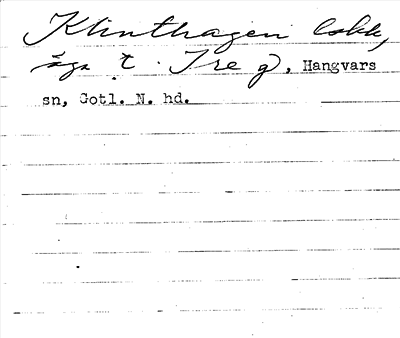 Klinthagen lokk,
äga t. Ire g, Hangvars
sn, Gotl. N. hd.